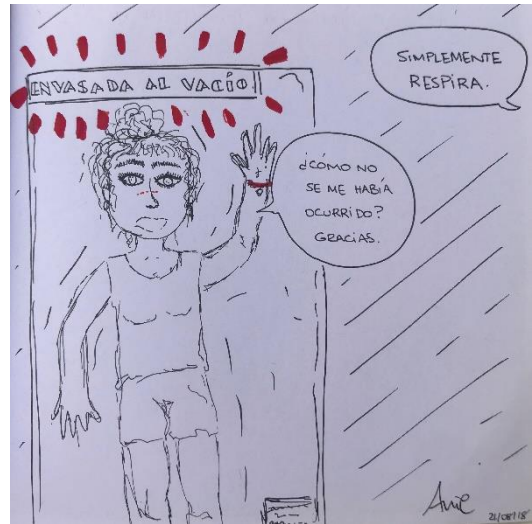 ENVASADA AL VACÍO
SIMPLEMENTE
RESPIRA.
¿CÓMO NO
SE ME HABÍA
OCURRIDO?
GRACIAS.
21/08/18